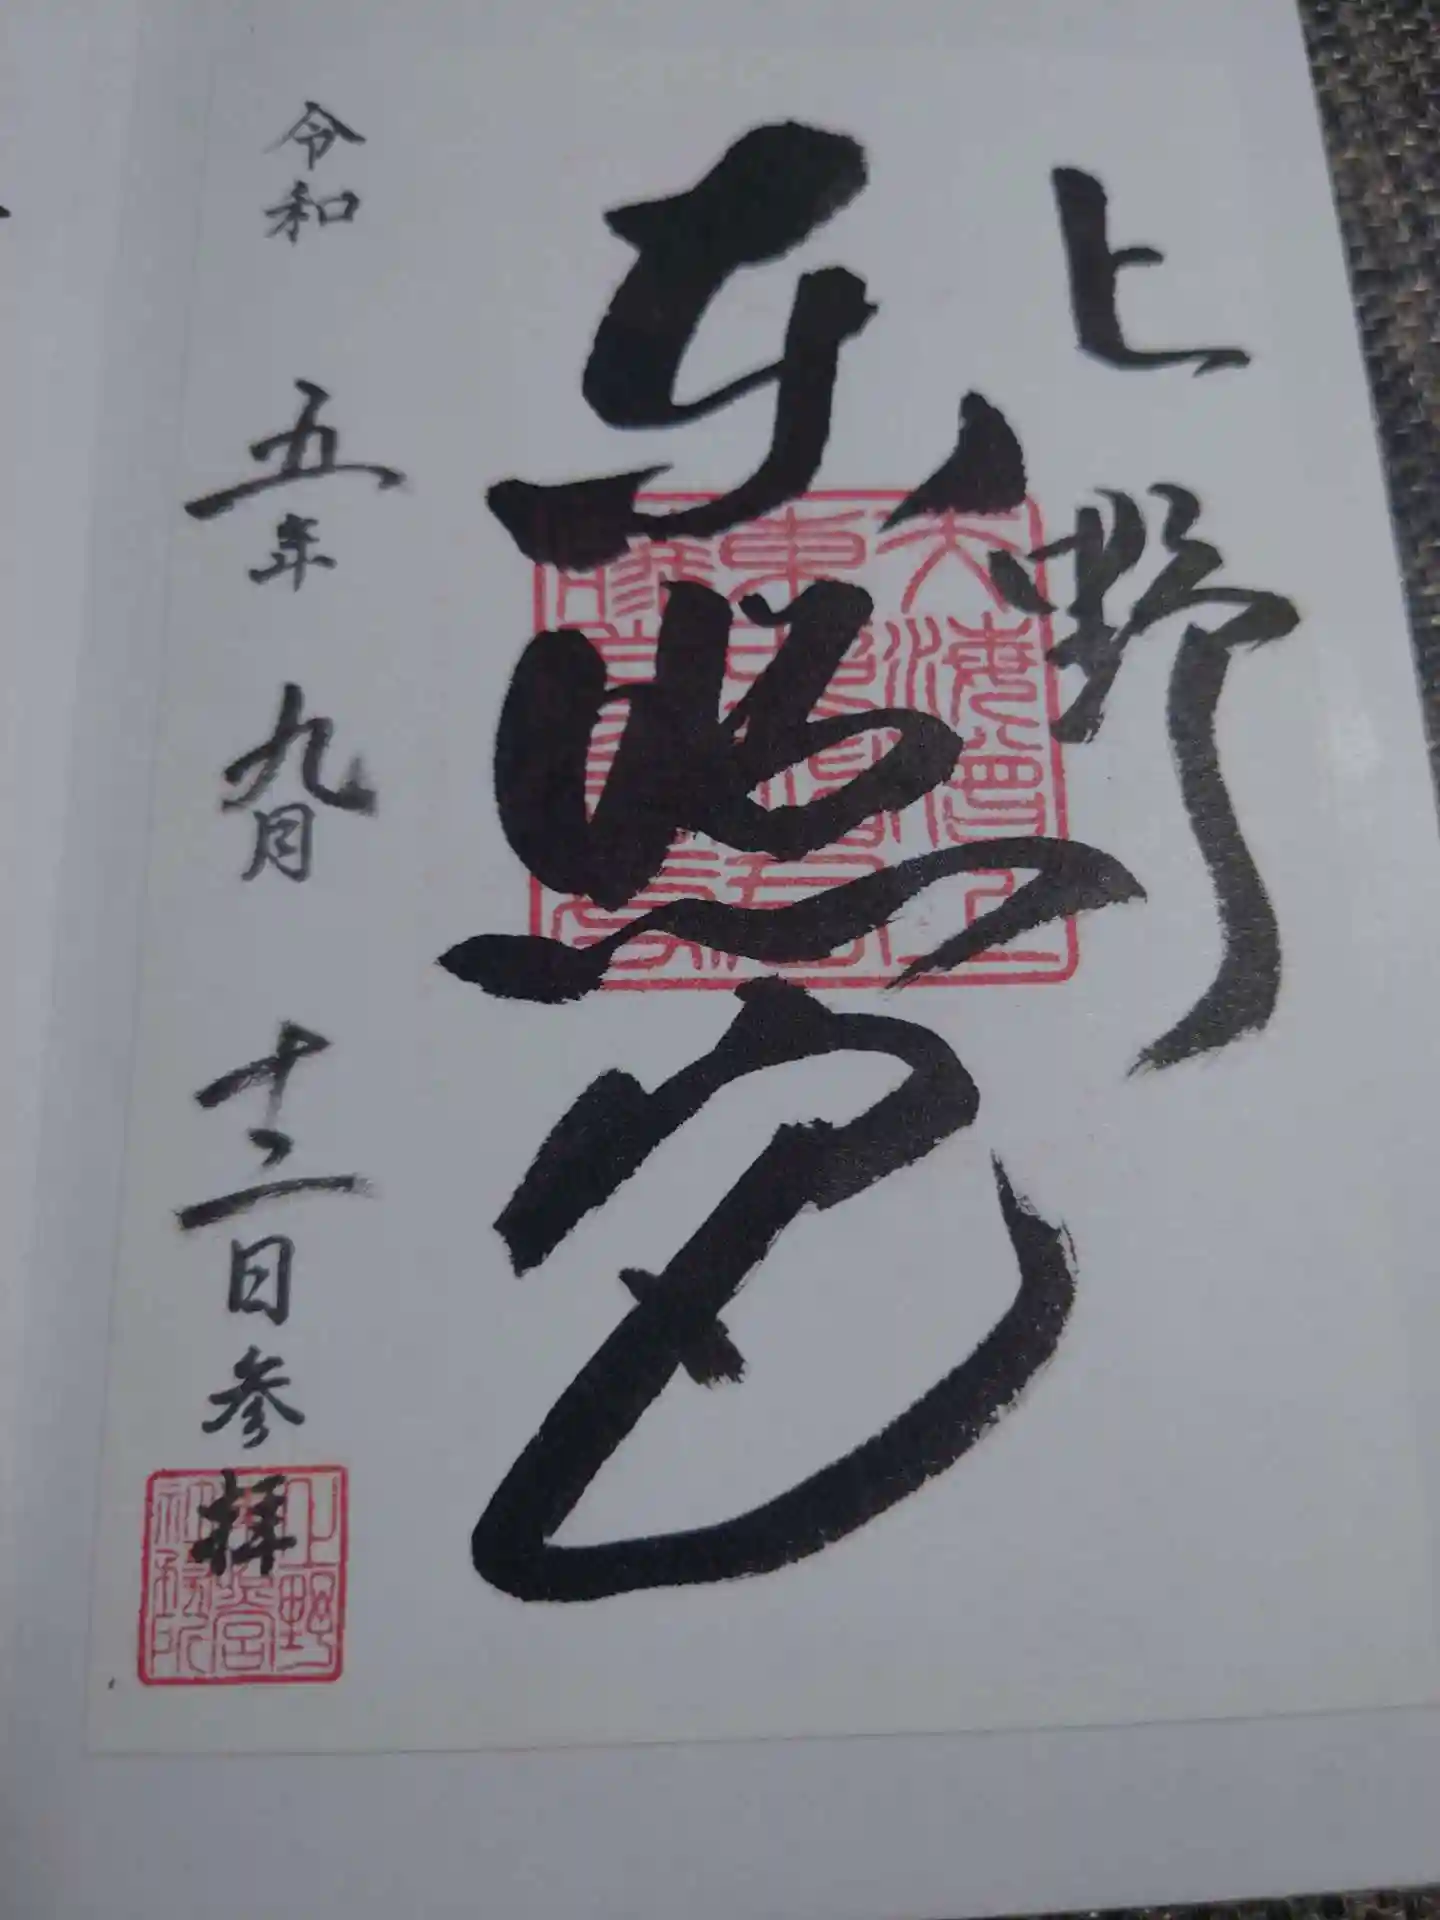 上野
東照宮
令和 五年 九月 十二日参拝
上野
東照宮
社務所